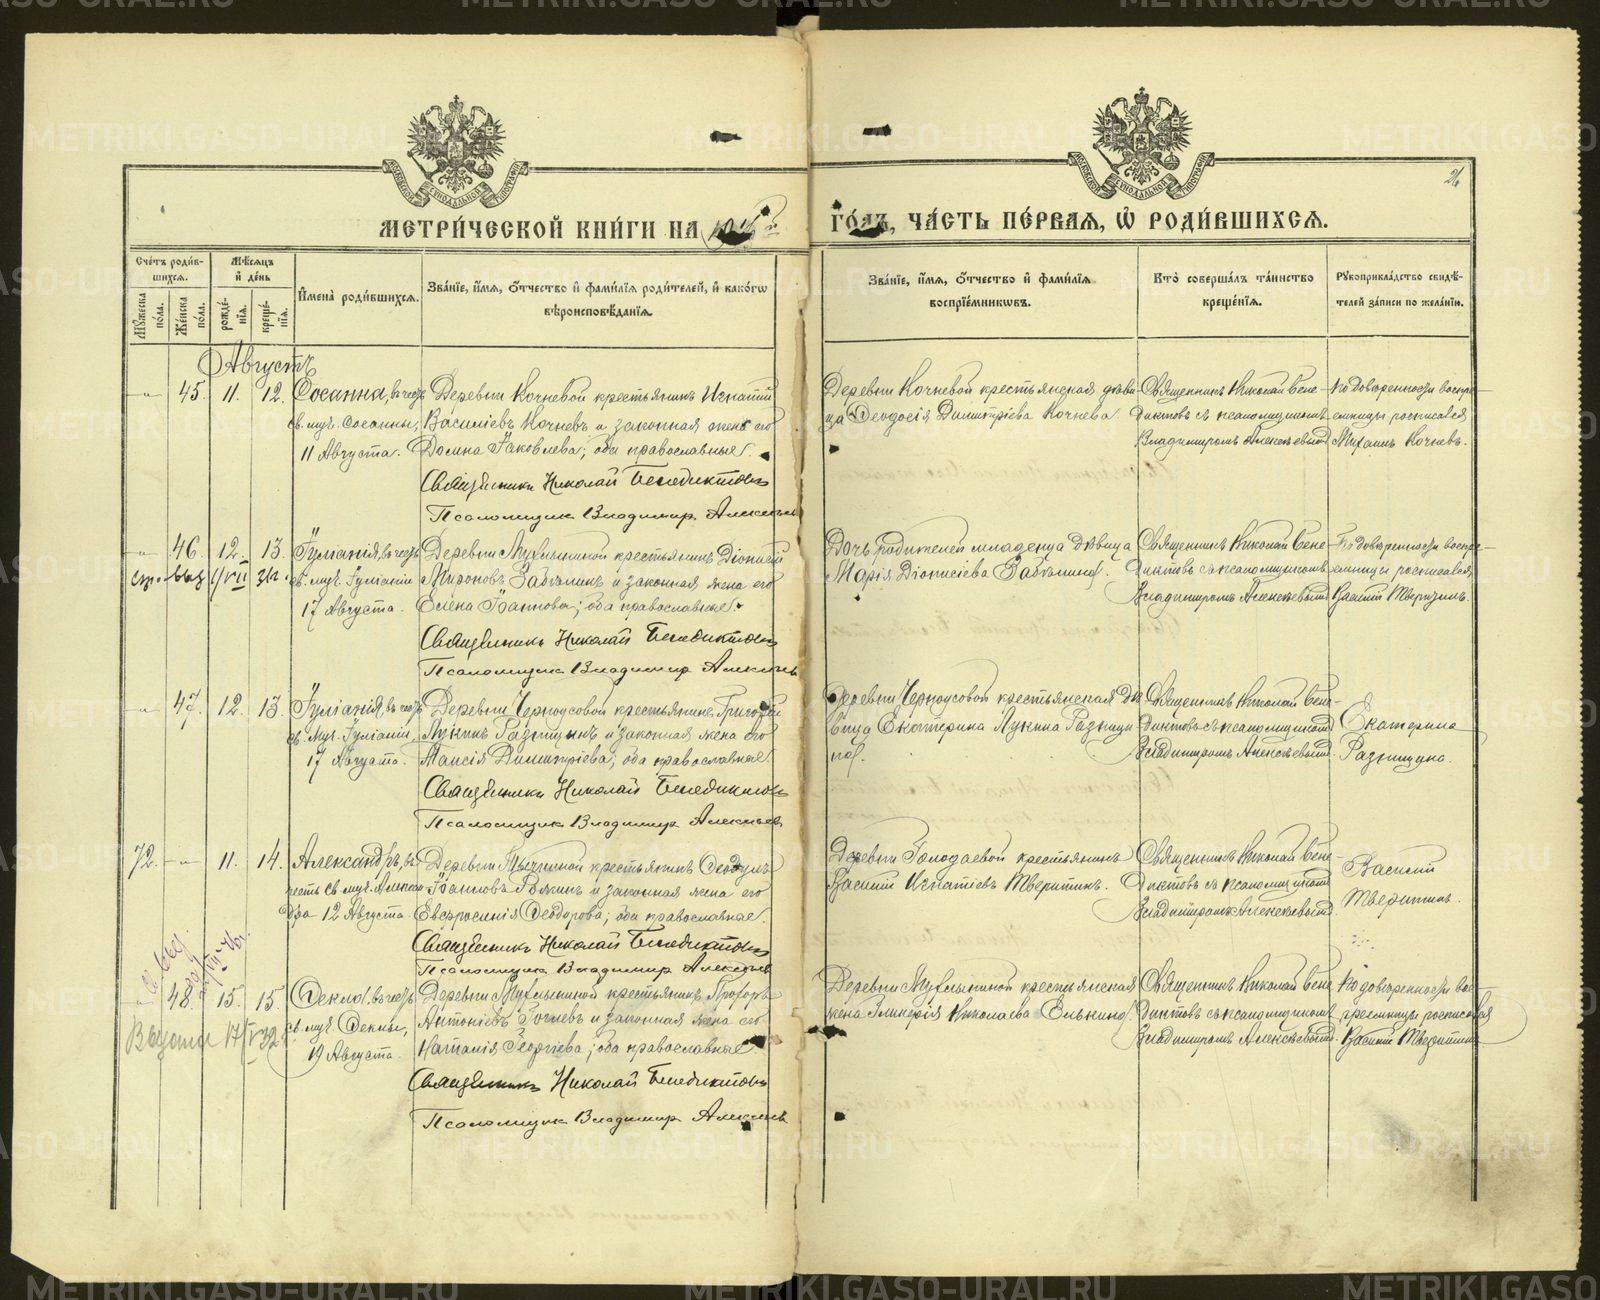 МЕТРИ́ЧЕСКОЙ КНИ́ГИ НА
ГО́ДЪ, ЧА́СТЬ ПЕ́РВАЯ, Ѡ҆ РОДИ́ВШИХСЯ.
26
Счетъ роди́вшихся.
Мѣ́сяцъ и де́нь
Имена̀ роди́вшихся.
Зва́нїе, и́мя, о́тчество и фами́лїя роди́телей, и како́гѡ вѣроисповѣ́данїя.
Зва́нїе, и́мя, о́тчество и фами́лїя воспрїе́мниковъ.
Кто̀ соверша́лъ та́инство креще́нїя.
Рукоприкла́дство свидѣ́телей за́писи по жела́нїю.
Му́жеска по́ла.
Же́нска по́ла.
рожде́нїя.
креще́нїя.
Августъ
45 11. 12. Сосанна, въ честь
св. муч. Сосанны,
11 Августа.
Деревни Кочневой крестьянинъ Игнатій
Василіевъ Кочневъ и законная жена его
Домна Іаковлева; оба православные.
Священникъ Николай Бенедиктовъ
Псаломщик Владимир Алексѣевъ
Деревни Кочневой крестьянская дѣви-
ца Ѳеодосія Димитріева Кочнева.
Священникъ Николай Бене-
диктовъ съ псаломщикомъ
Владимиромъ Алексѣевымъ
По довѣренности воспрі-
емницы росписался
Михаилъ Кочневъ.
46. 12. 13. Іуліанія, въ честь
св. муч. Іуліаніи
17 Августа.
крестьянинъ Діонисій
Мироновъ Забѣлинъ и законная жена его
Елена Іоаннова; оба православные.
Священникъ Николай Бенедиктовъ
Псаломщик Владимир Алексѣевъ
Дочь родителей младенца дѣвица
Марія Діонисіева Забѣлина.
Священникъ Николай Бене-
диктовъ съ псаломщикомъ
Владимиромъ Алексѣевымъ
По довѣренности воспрі-
емницы росписался
Василій Тверитинъ.
47. 12. 13. Іуліанія, въ честь
св. муч. Іуліаніи
17 Августа.
Деревни Черноусовой крестьянинъ Григорій
Лукинъ и законная жена его
Таисія Димитріева; оба православные.
Священникъ Николай Бенедиктовъ
Псаломщик Владимир Алексѣевъ
Деревни Черноусовой крестьянская дѣ-
вица Екатерина Лукина
Священникъ Николай Бене-
диктовъ съ псаломщикомъ
Владимиромъ Алексѣевымъ.
Екатерина
72. 11. 14. Александръ, въ
честь св. муч. Алексан-
дра 12 Августа
крестьянинъ
Іоанновъ и законная жена его
Евфросинія Ѳеодорова; оба православные.
Священникъ Николай Бенедиктовъ
Псаломщик Владимир Алексѣевъ
Деревни Голодаевой крестьянинъ
Василій Игнатіевъ Тверитинъ.
Священникъ Николай Бене-
диктовъ съ псаломщикомъ
Владимиромъ Алексѣевымъ.
Василій
Тверитинъ.
48. 15. 15 Ѳекла, въ честь
св. муч. Ѳеклы,
19 Августа.
крестьянинъ Прохоръ
Антоніевъ и законная жена его
Наталія Георгіева; оба православные
Священникъ Николай Бенедиктовъ
Псаломщик Владимир Алексѣевъ
крестьянская
жена Гликерія Николаева Елькина.
Священникъ Николай Бене-
диктовъ съ псаломщикомъ
Владимиромъ Алексѣевымъ.
По довѣренности вос-
пріемницы росписался
Василій Тверитинъ
METRIKI.GASO-URAL.RU